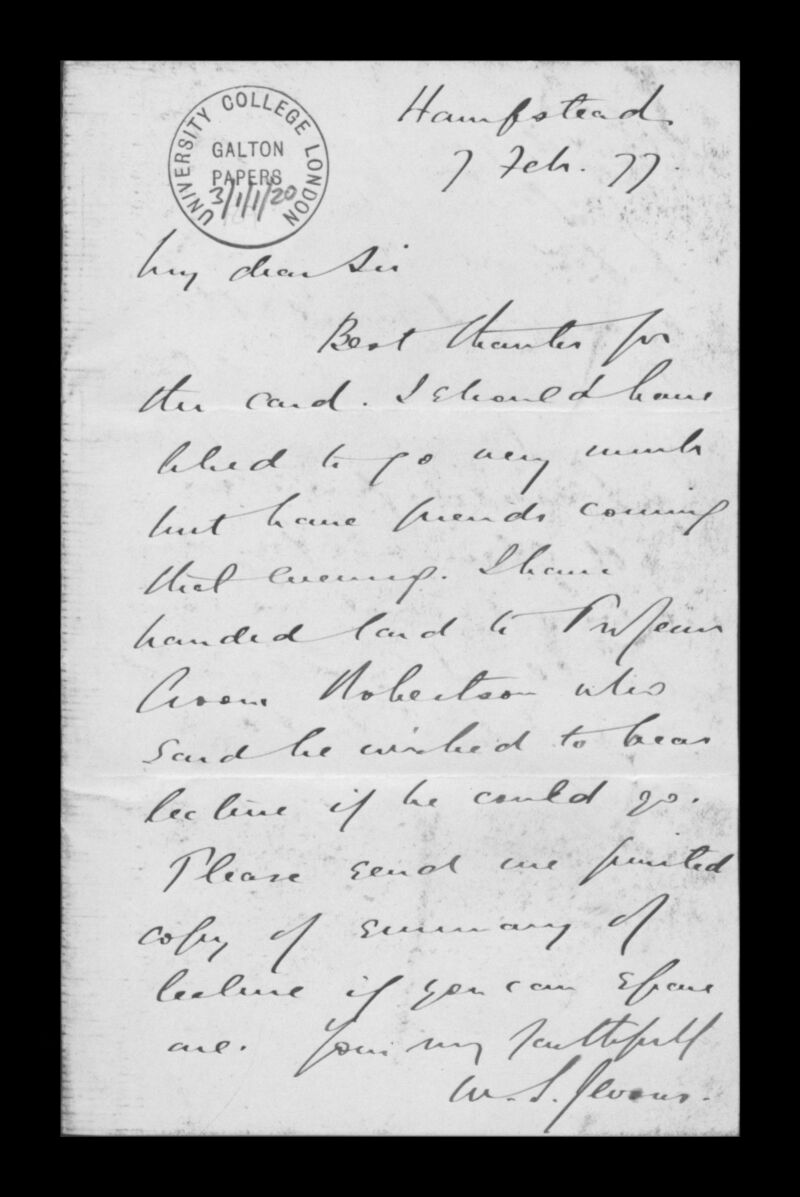 UNIVERSITY COLLEGE LONDON
GALTON
PAPERS
3/1/1/20
Hampstead
7 Feb. 77.
My dear Sir
Best thanks for
the card. I should have
liked to go very much
but have friends coming
that evening. I have
handed card to Professor
Croom Robertson who
said he wished to hear
lecture if he could go.
Please send me printed
copy of summary of
lecture if you can spare
one. Yours very faithfully
W. S. Jevons.